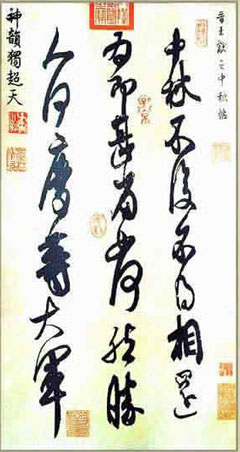 晉王獻之中秋帖
中秋不復不得相還
為即甚省如何然勝
人何慶等大軍
神韻獨超天